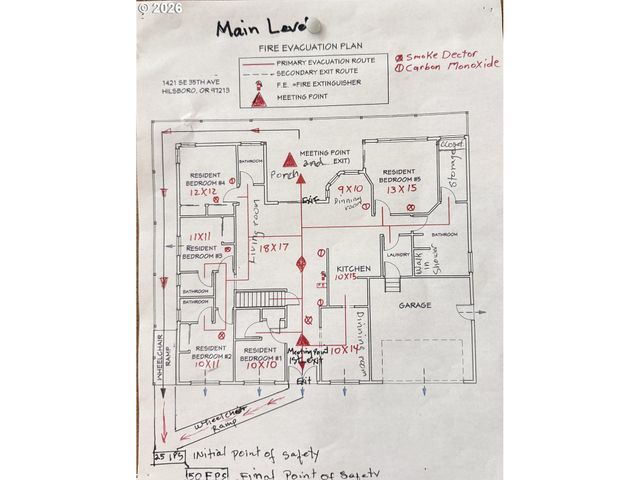 © 2026
Main Level
FIRE EVACUATION PLAN
PRIMARY EVACUATION ROUTE
SECONDARY EXIT ROUTE
F.E. =FIRE EXTINGUISHER
MEETING POINT
Smoke Dector
Carbon Monoxide
1421 SE 35TH AVE
HILSBORO, OR 97213
BATHROOM
MEETING POINT
and EXIT)
Porch
RESIDENT
BEDROOM #4
12X12
Exit
9X10
Dinning
room
RESIDENT
BEDROOM #5
13X15
Closet
Storage
11X11
RESIDENT
BEDROOM #3
Living room
18X17
BATHROOM
LAUNDRY
Walk
in
Shower
KITCHEN
10X13
BATHROOM
BATHROOM
GARAGE
RESIDENT
BEDROOM #2
10X11
RESIDENT
BEDROOM #1
10X10
Meeting Point
1st exit
Exit
10X14
Dinning room
WHEELCHAIR
RAMP
Wheelchair
Ramp
25 FPS Initial Point of Safety
50 FPS Final Point of Safety